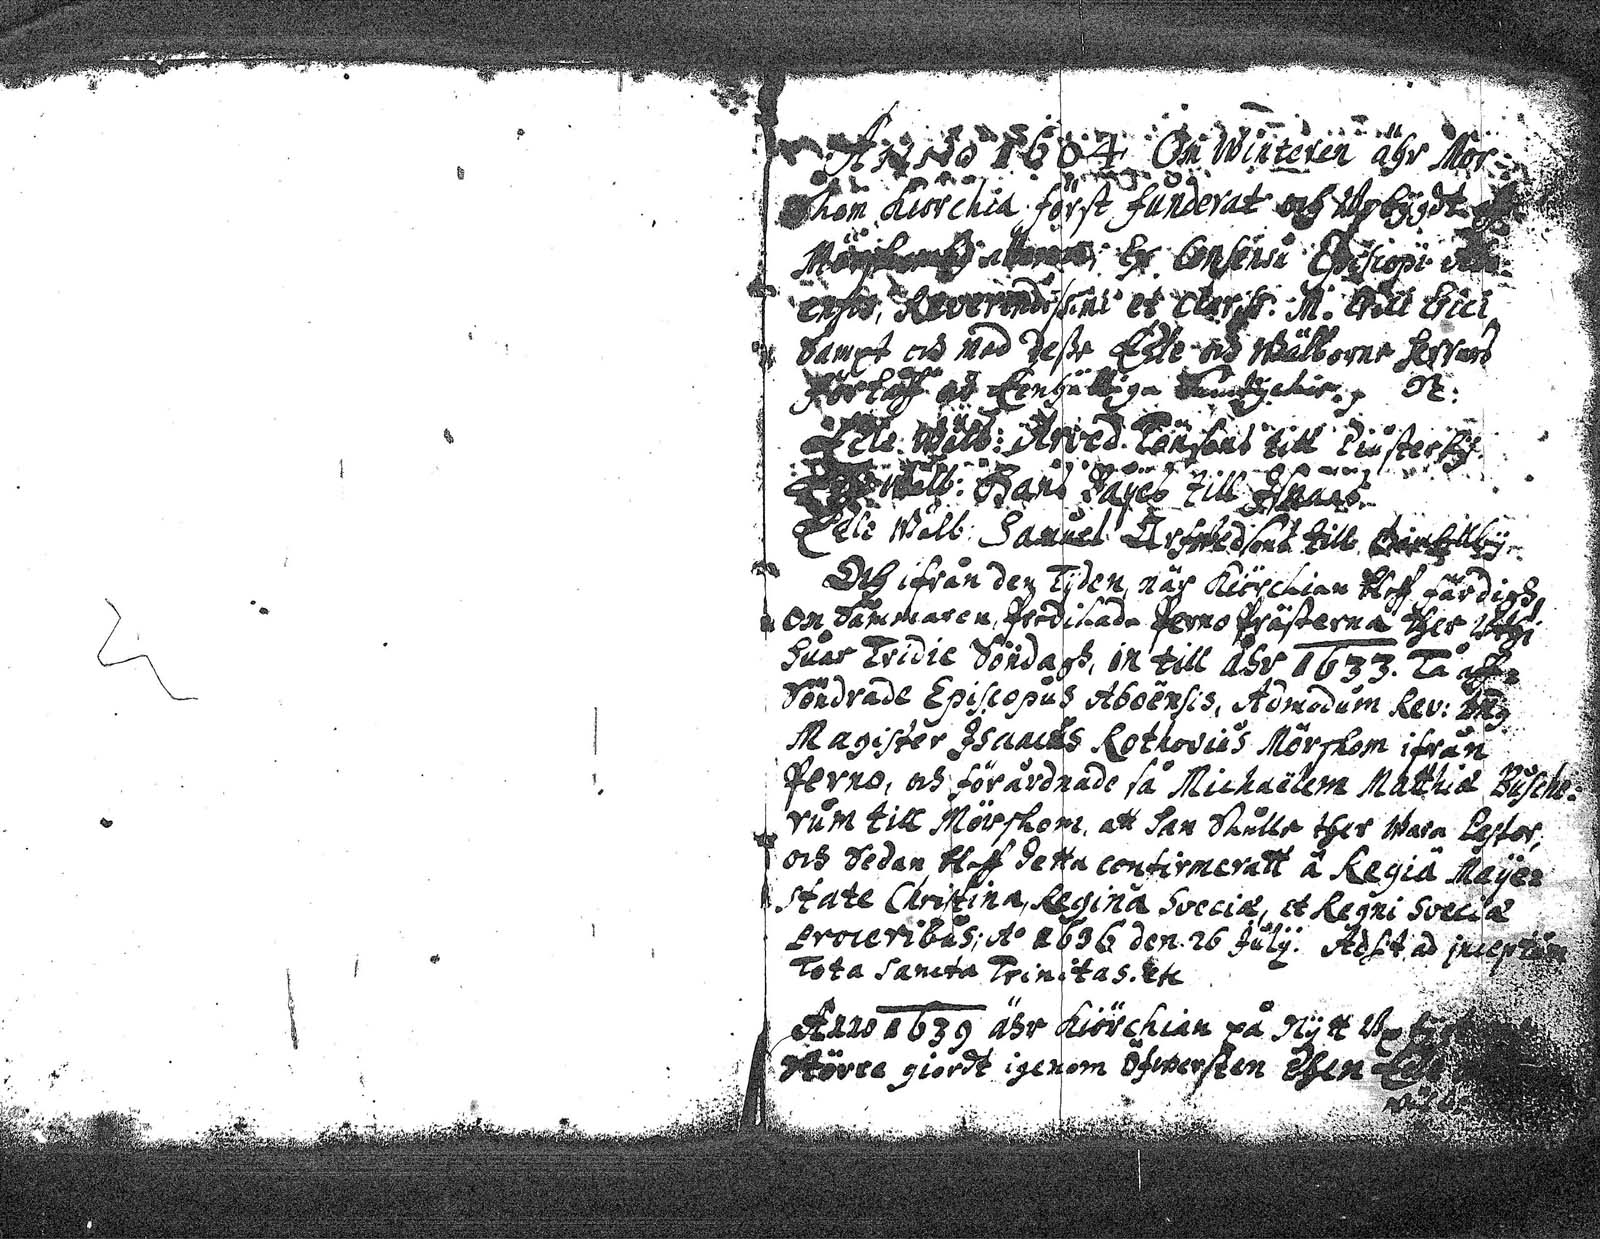 ANNO 1604 Om Winteren ähr Mör-
skom Kiörchia först funderat och Upbygdt aff
Ex Consensu Episcopi
ensis, Reverendissimi et Clariss: M. Erici Erici
Sampt och med desse Edle och Wälborne Herrars
och Eenhällige N:
Edle Wälb: Arved Tönsons till Tiusterby
Wälb: Hans till
Edle Wälb: Samuel till
Och ifrån den Tijden, när Kiörchian bleff färdigh,
om Sommaren, Predikade Perno Prästerna ther Uthi
huar Tridie Söndagh, in till åhr 1633. Tå aff-
Söndrade Episcopus Aboënsis, Admodum Rev: Dng
Magister Isaacus Rothovius Mörskom ifrån
Perno, och förårdnade så Michaëlem Matthiæ Busche-
rum till Mörskom, att han skulle ther wara Pastor,
och Sedan bleff detta confirmeratt â Regiâ Mayje-
state Christina, Reginâ Sveciæ, et Regni Sveciæ
Proceribus; A° 1636 den 26 Julij. Adsit ad inceptum
Tota Sancta Trinitas. etc
Anno 1639 ähr Kiörchian på Nytt
Större giordt igenom Öfwersten Then Edle